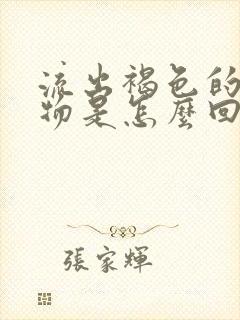 流出褐色的
物是怎麼回
張家輝